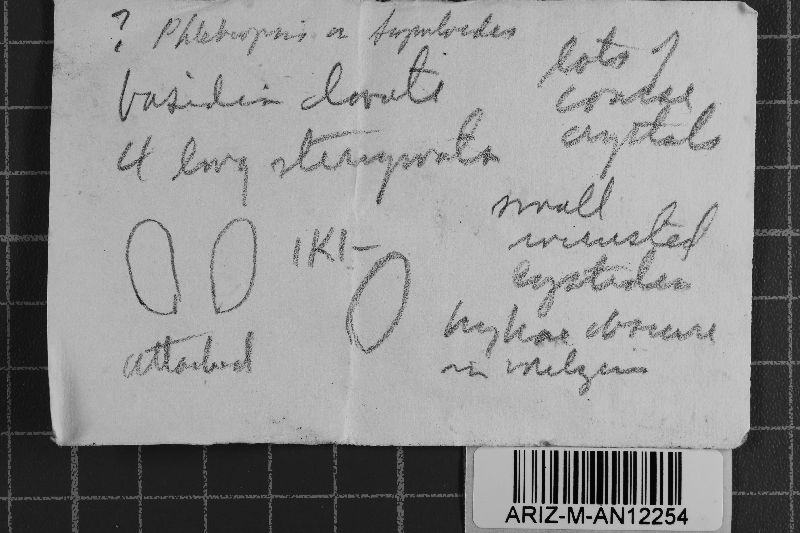 ? Phlebiopsis or
basidia clavate
4 long sterigmata
lots of
coarse
crystals
small
incrusted
cystidia
hyphae obscure
in melzers
IKI-
attached
ARIZ-M-AN12254